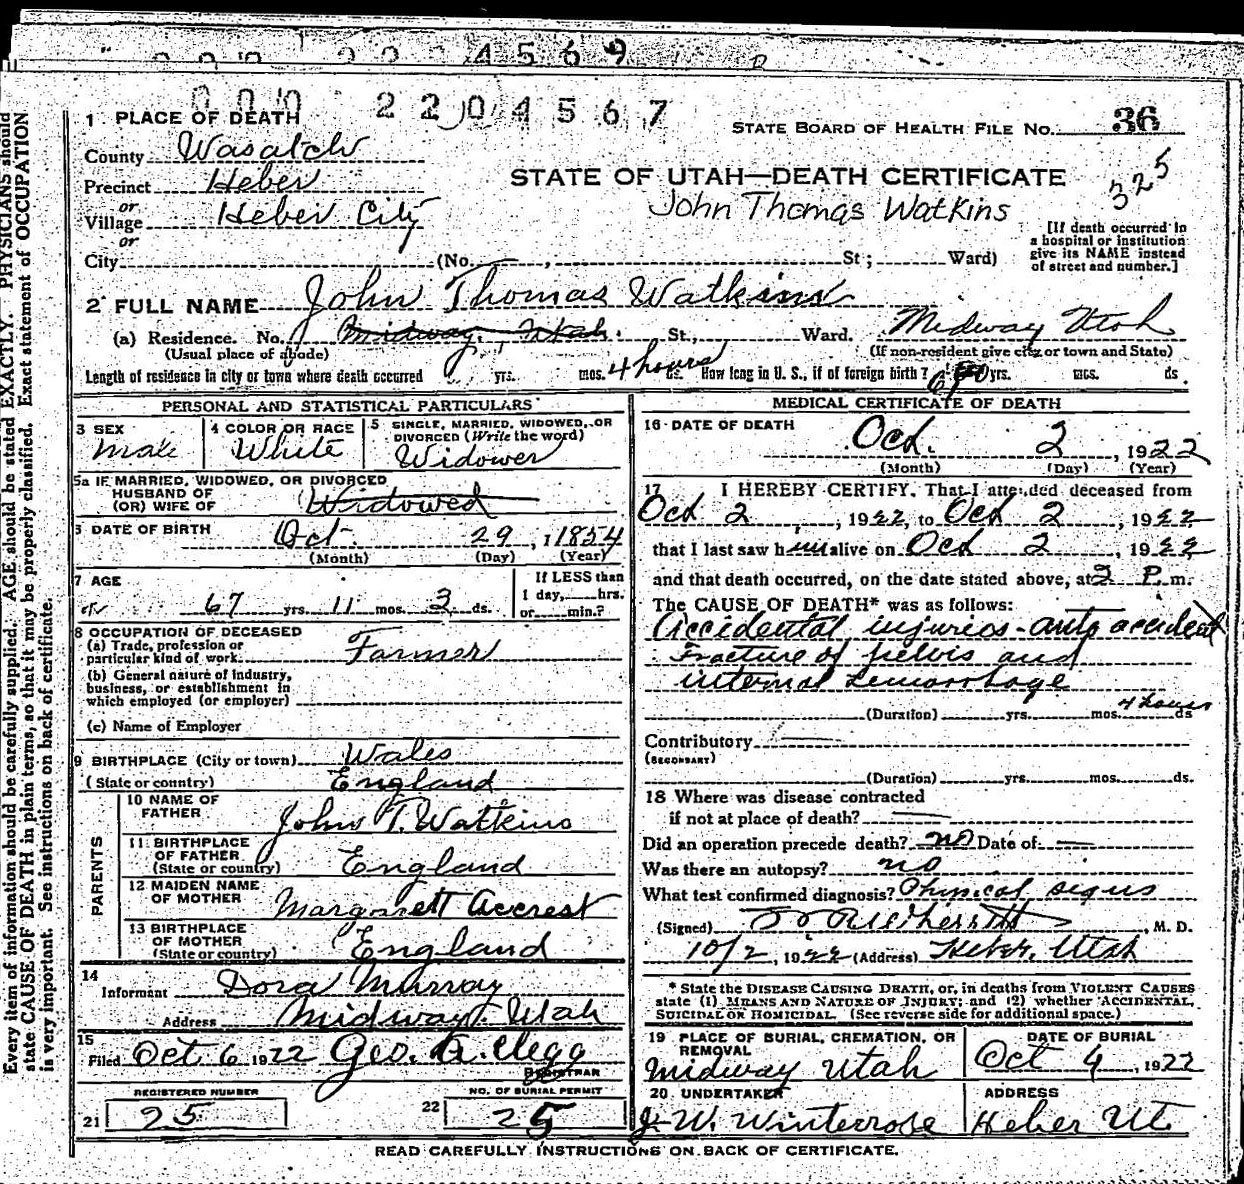 4569
000 2204567
1 PLACE OF DEATH
STATE BOARD OF HEALTH FILE No. 36
County Wasatch
325
Precinct Heber
STATE OF UTAH—DEATH CERTIFICATE
or
Village Heber City
John Thomas Watkins
or
City (No. , St; Ward)
[If death occurred in
a hospital or institution
give its NAME instead
of street and number.]
2 FULL NAME John Thomas Watkins
(a) Residence. No. Midway, Utah. St., Ward. Midway Utah
(Usual place of abode) (If non-resident give city or town and State)
Length of residence in city or town where death occurred yrs. mos. 4 hours ds. How long in U. S., if of foreign birth? yrs. mos. ds.
PERSONAL AND STATISTICAL PARTICULARS
3 SEX
Male
4 COLOR OR RACE
White
5 SINGLE, MARRIED, WIDOWED, OR
DIVORCED (Write the word)
Widower
5a IF MARRIED, WIDOWED, OR DIVORCED
HUSBAND OF
(OR) WIFE OF Widowed
6 DATE OF BIRTH Oct. 29, 1854
(Month) (Day) (Year)
7 AGE
67 yrs. 11 mos. 3 ds.
If LESS than
1 day, hrs.
or min.?
8 OCCUPATION OF DECEASED
(a) Trade, profession or
particular kind of work. Farmer
(b) General nature of industry,
business, or establishment in
which employed (or employer)
(c) Name of Employer
9 BIRTHPLACE (City or town) Wales
(State or country) England
PARENTS
10 NAME OF
FATHER John T. Watkins
11 BIRTHPLACE
OF FATHER
(State or country) England
12 MAIDEN NAME
OF MOTHER Margarett Accrest
13 BIRTHPLACE
OF MOTHER
(State or country) England
14
Informant Dora Murray
Address Midway, Utah
15
Filed Oct 6 1922 Geo. A. Clegg
REGISTRAR
REGISTERED NUMBER
21 25
NO. OF BURIAL PERMIT
22 25
MEDICAL CERTIFICATE OF DEATH
16 DATE OF DEATH
Oct. 2, 1922
(Month) (Day) (Year)
17 I HEREBY CERTIFY, That I attended deceased from
Oct 2, 1922, to Oct 2, 1922
that I last saw him alive on Oct 2, 1922
and that death occurred, on the date stated above, at 2 P. m.
The CAUSE OF DEATH* was as follows:
Accidental injuries - auto accident
Fracture of pelvis and
internal hemorrhage
4 hours
(Duration) yrs. mos. ds
Contributory
(SECONDARY)
(Duration) yrs. mos. ds.
18 Where was disease contracted
if not at place of death?
Did an operation precede death? no Date of
Was there an autopsy? no
What test confirmed diagnosis? Physical signs
(Signed) , M. D.
10/2, 1922 (Address) Heber, Utah
* State the DISEASE CAUSING DEATH, or, in deaths from VIOLENT CAUSES
state (1) MEANS AND NATURE OF INJURY; and (2) whether ACCIDENTAL,
SUICIDAL OR HOMICIDAL. (See reverse side for additional space.)
19 PLACE OF BURIAL, CREMATION, OR
REMOVAL
Midway Utah
DATE OF BURIAL
Oct 4, 1922
20 UNDERTAKER
J. W. Winterrose
ADDRESS
Heber Ut.
READ CAREFULLY INSTRUCTIONS ON BACK OF CERTIFICATE.
Every item of information should be carefully supplied. AGE should be stated EXACTLY. PHYSICIANS should
state CAUSE OF DEATH in plain terms, so that it may be properly classified. Exact statement of OCCUPATION
is very important. See instructions on back of certificate.